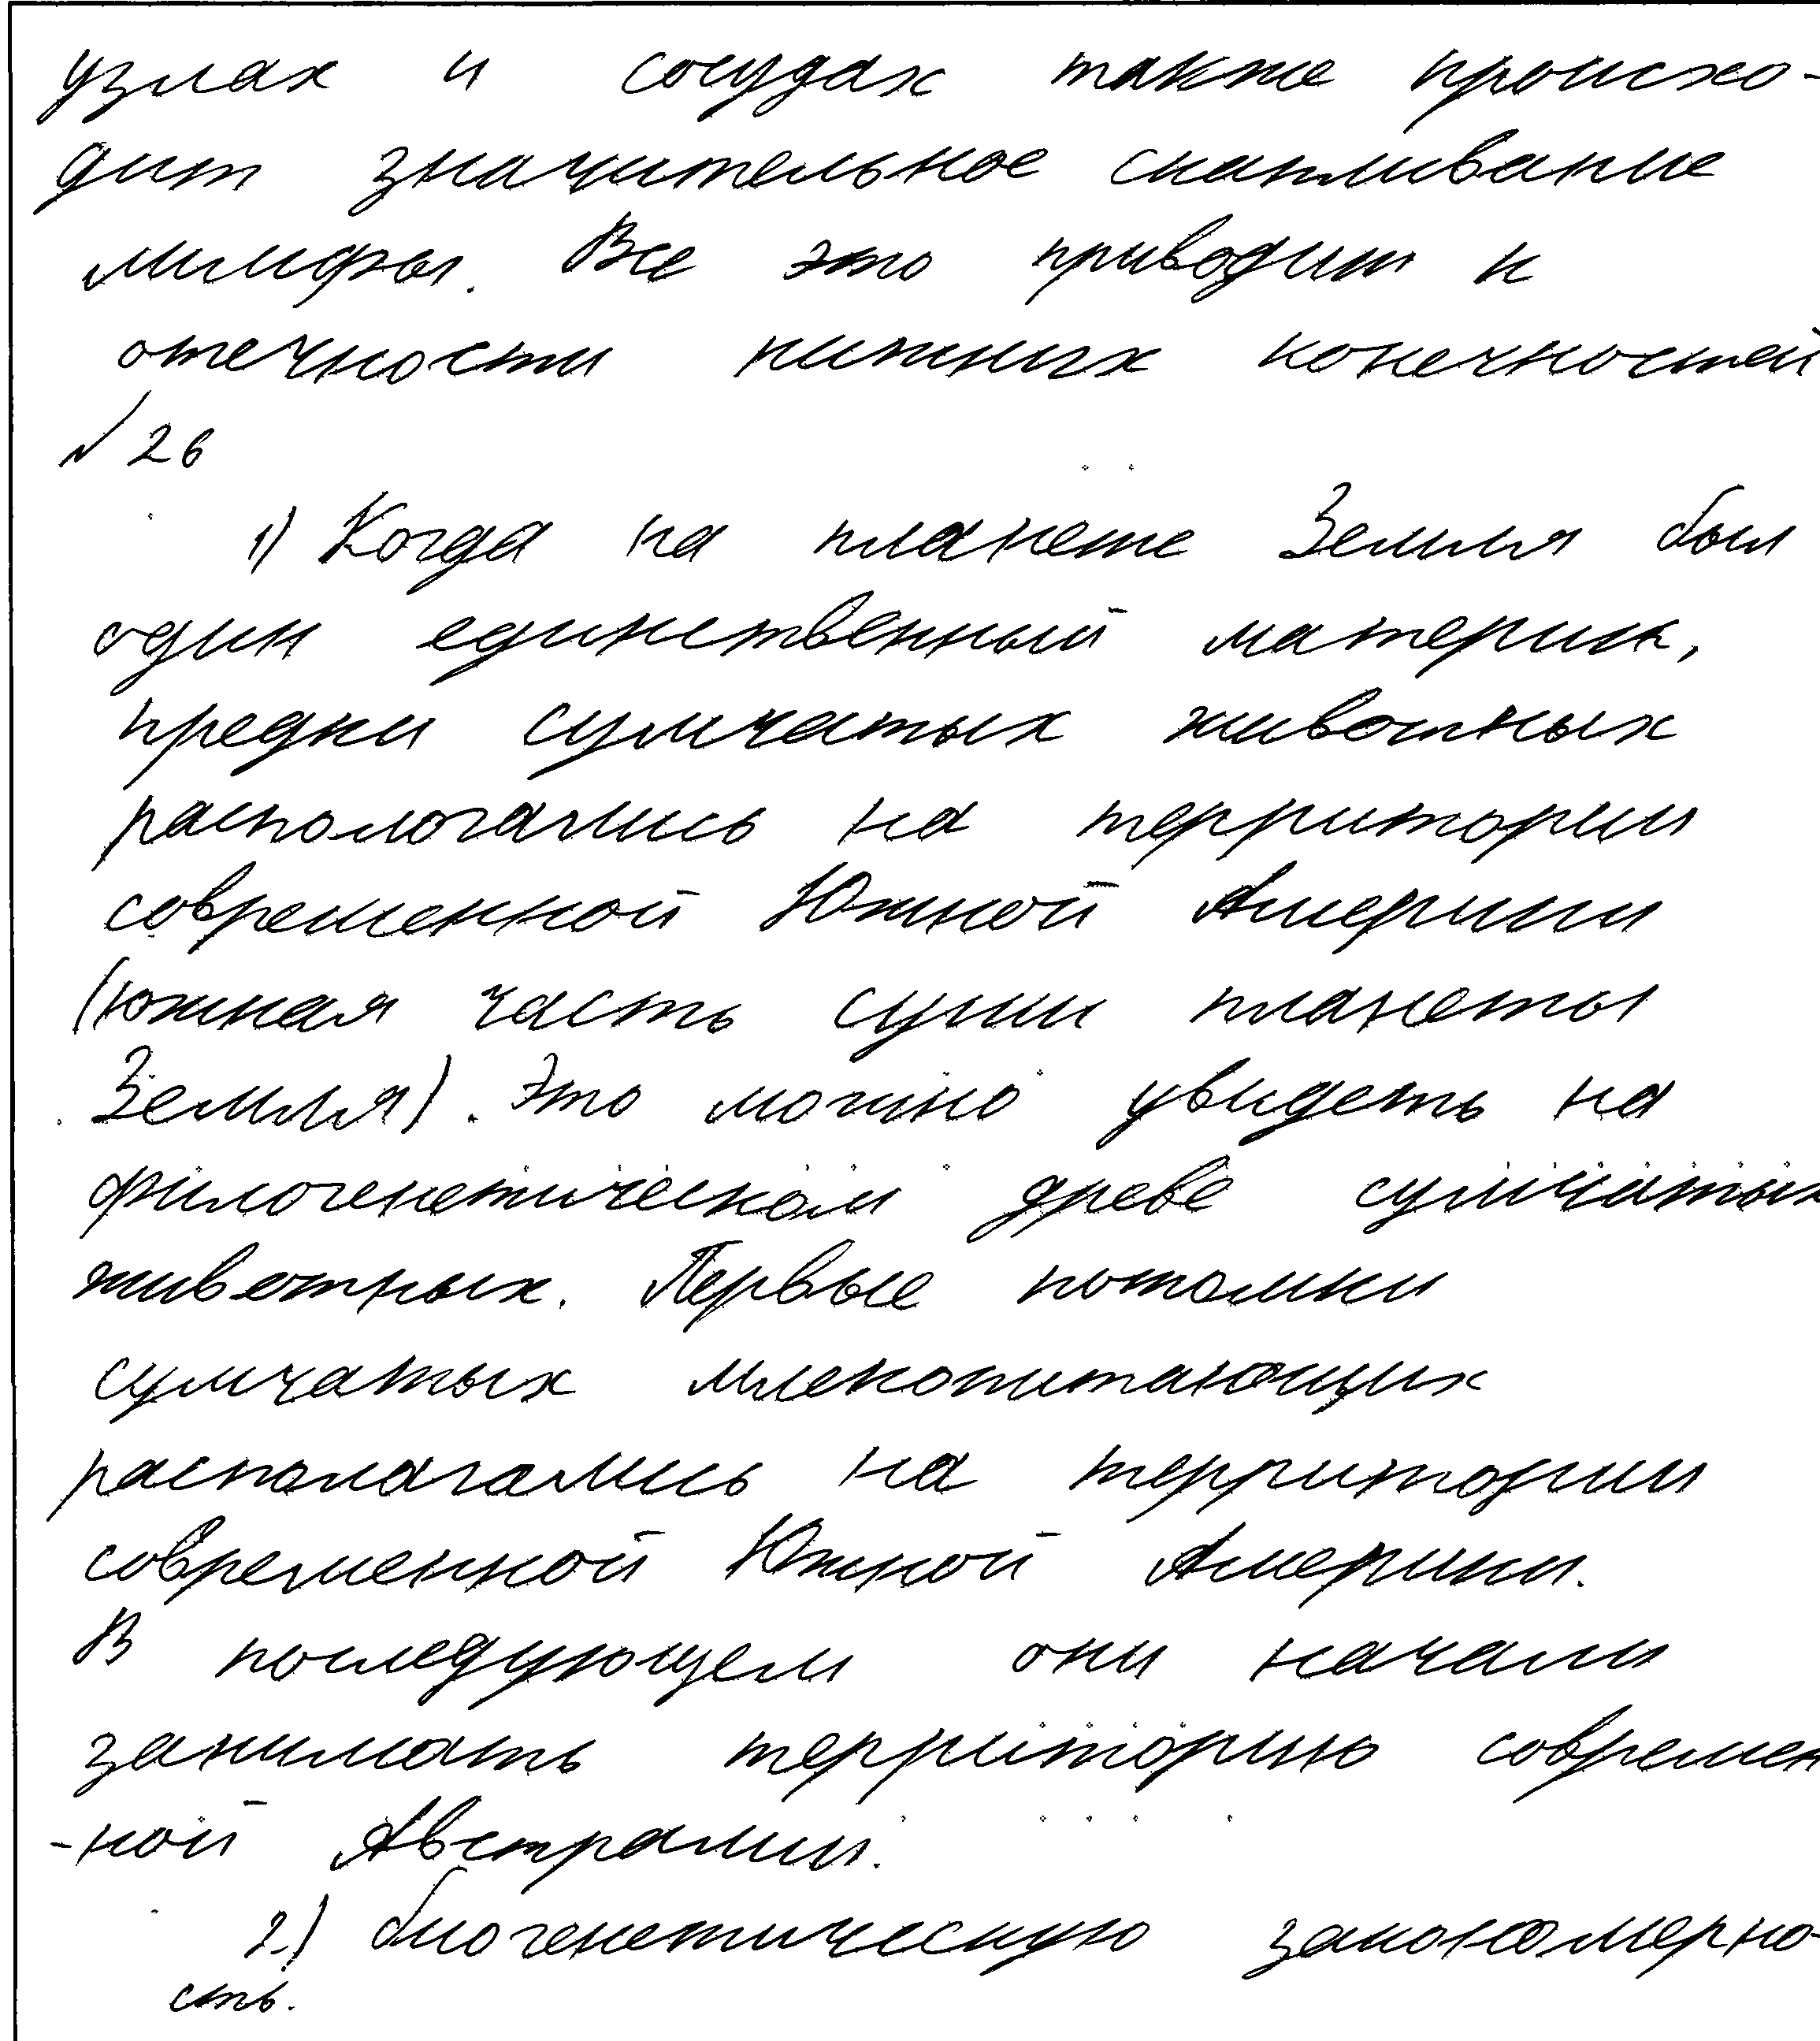 узлах и сосудах также происхо-
дит значительное скапливание
лимфы. Все это приводит к
отечности нижних конечностей
№ 26
1) Когда на планете Земля был
один единственный материк,
предки сумчатых животных
распологались на территории
современной Южной Америки
(южная часть суши планеты
Земля). Это можно увидеть на
филогенетическом древе сумчатых
животных. Первые потомки
сумчатых млекопитающих
располагались на территории
современной Южной Америки.
В последующем они начали
занимать территорию современ
-ной Австралии.
2.) биогенетическую закономерно-
сть.